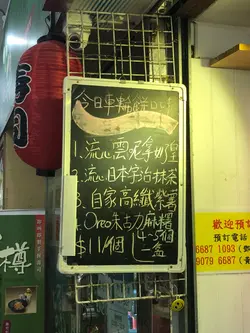 今日車輪餅口味
1. 流心雲尼拿奶皇
2. 流心日本宇治抹茶
3. 自家高纖紫薯
4. Oreo朱古力麻糬
$11/個
4-5個
一盒
壽司
樽
歡迎預訂
預訂電話
6687 1093
9079 6687